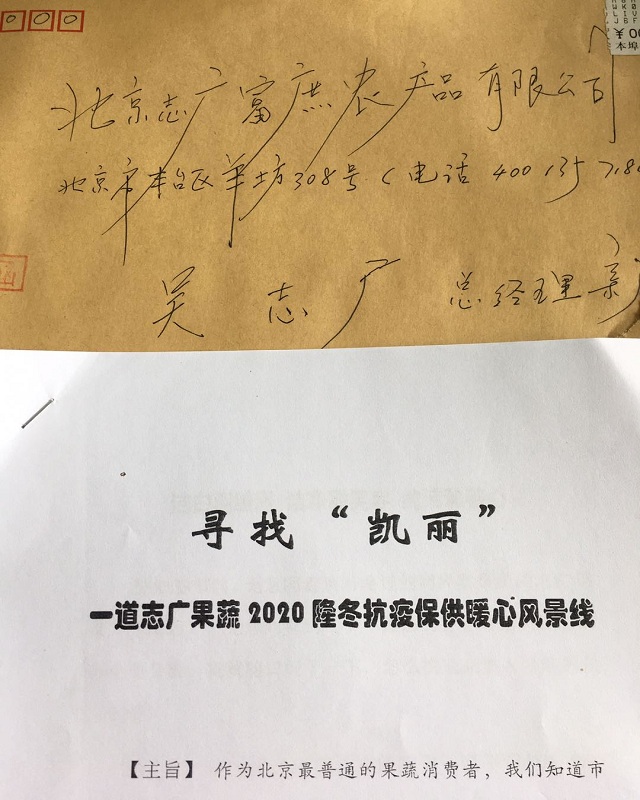 北京志广富庶农产品有限公司
北京市丰台区羊坊308号(电话 400 135
吴志广 总经理 亲
寻找“凯丽”
一道志广果蔬2020隆冬抗疫保供暖心风景线
【主旨】 作为北京最普通的果蔬消费者,我们知道市